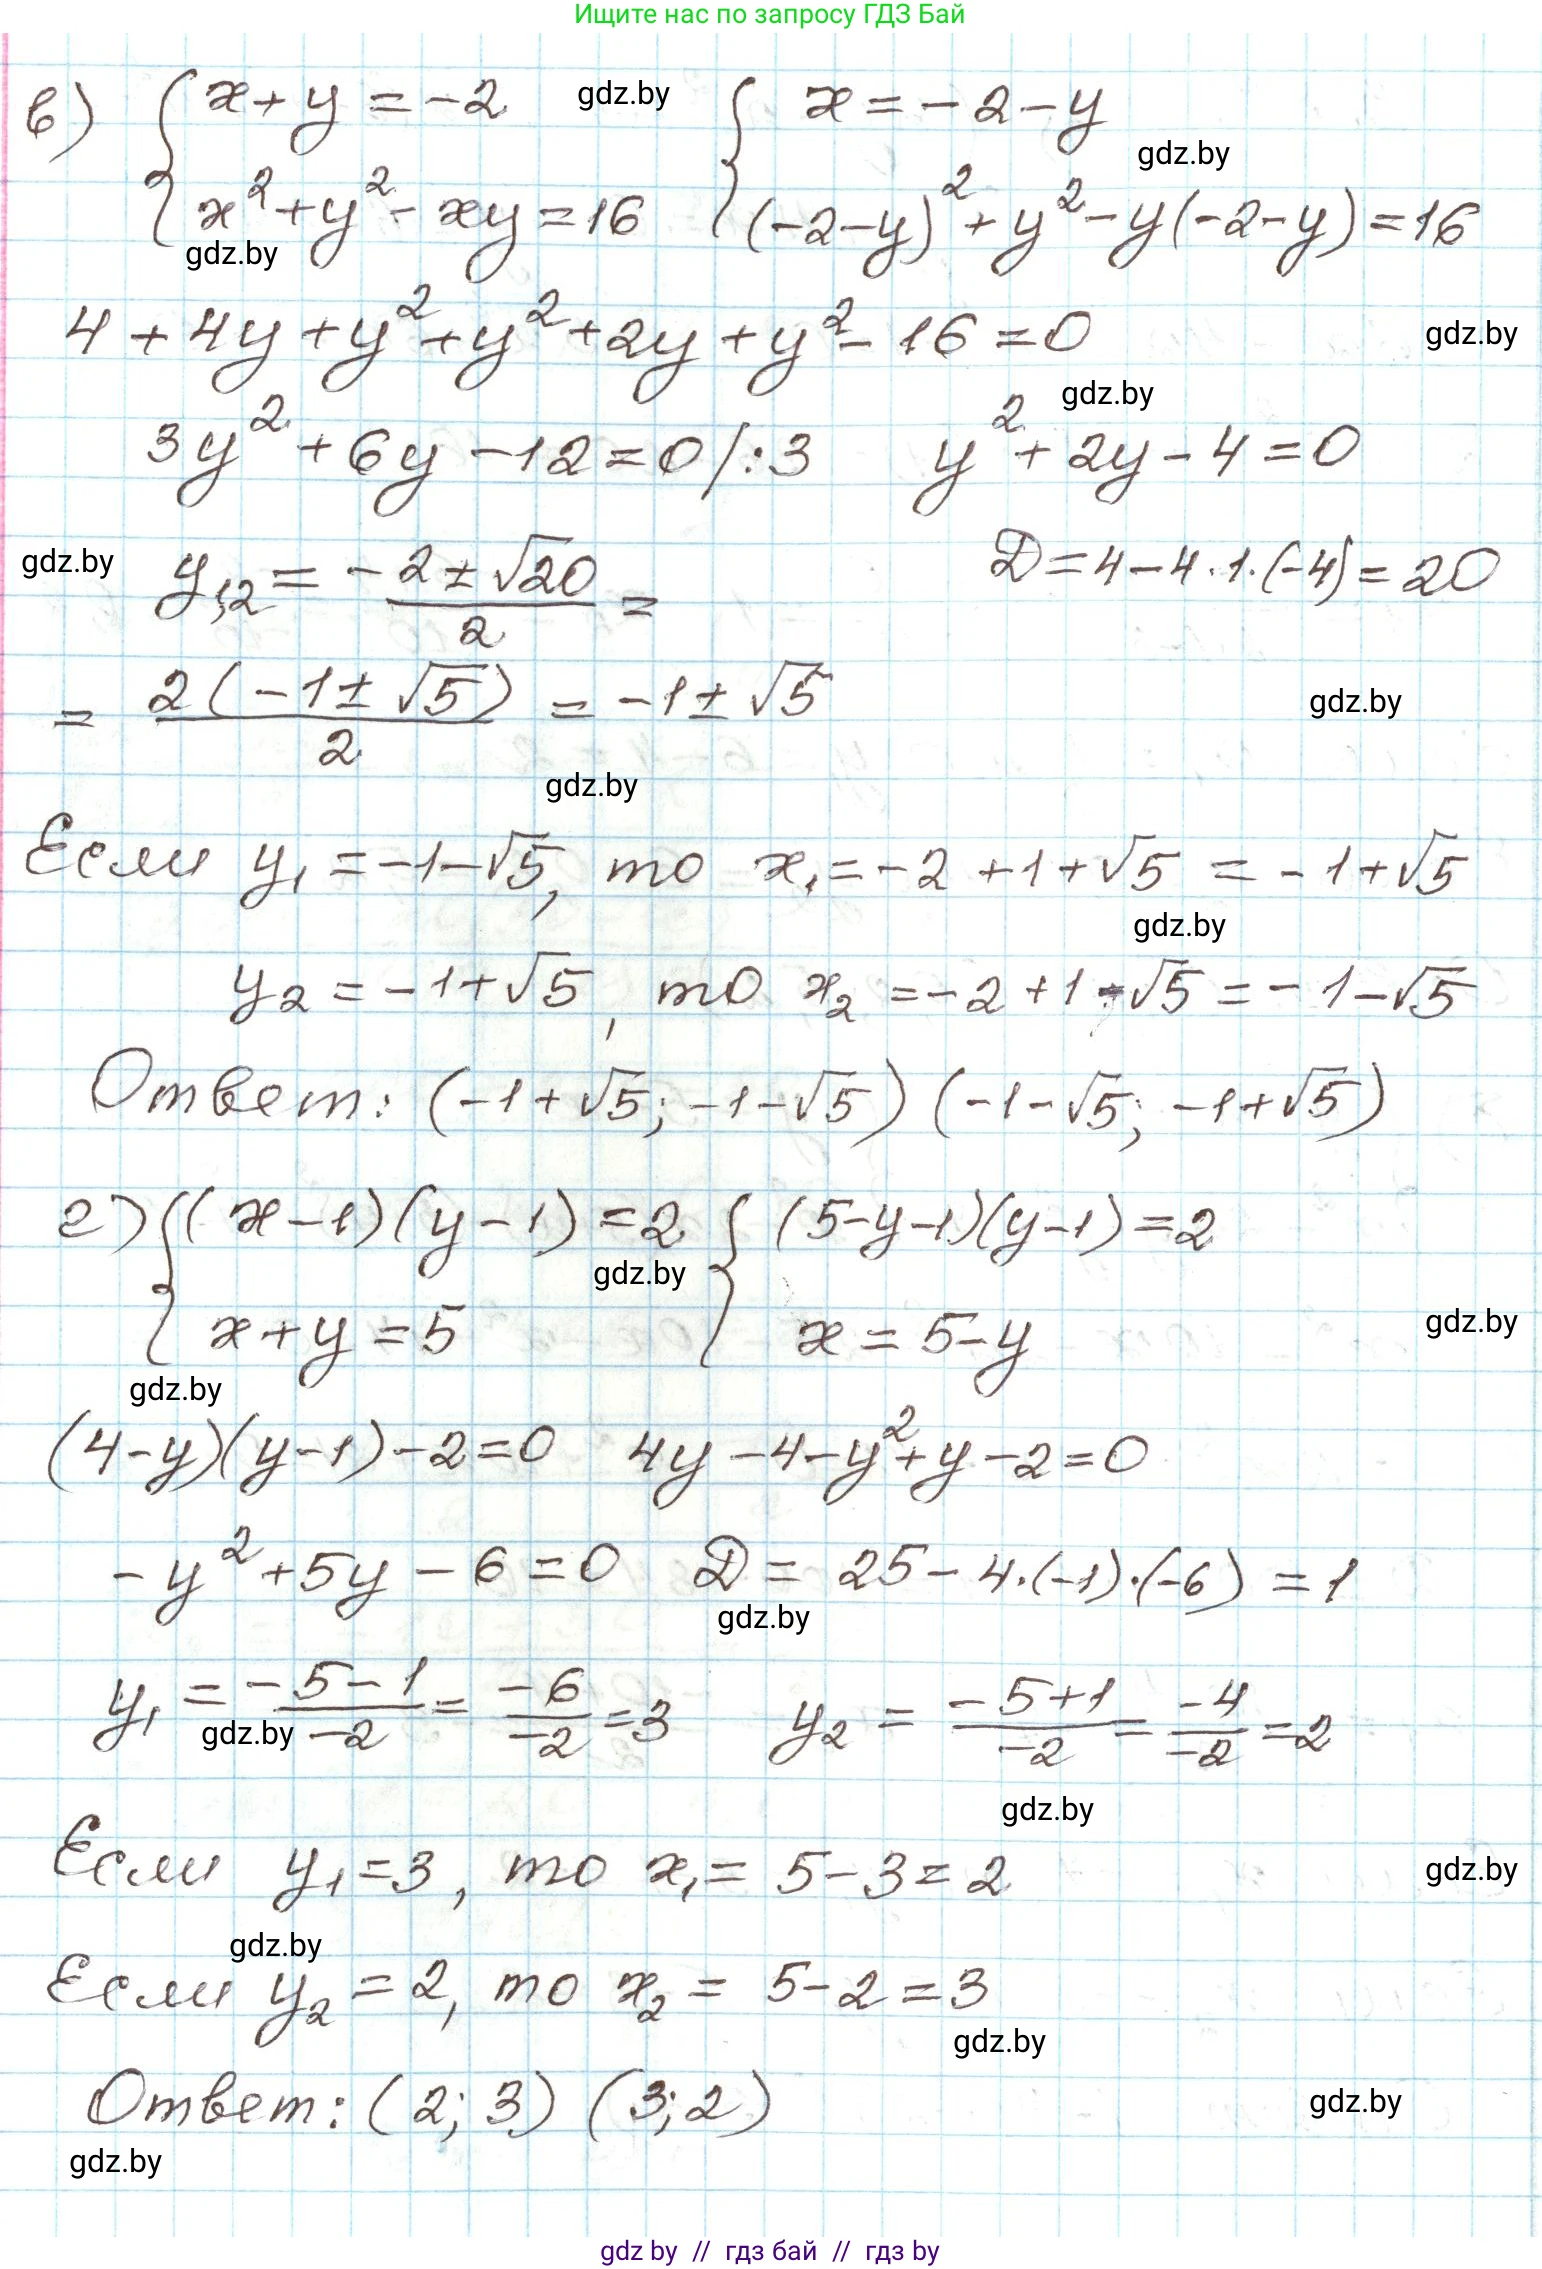 Ищите нас по запросу ГДЗ Бай
в) { x + y = -2 gdz.by { x = -2 - y
gdz.by
x² + y² - xy = 16 (-2-y)² + y² - y(-2-y) = 16
gdz.by
4 + 4y + y² + y² + 2y + y² - 16 = 0 gdz.by
gdz.by
3y² + 6y - 12 = 0 /:3 y² + 2y - 4 = 0
gdz.by y₁,₂ = -2 ± √20 / 2 = D = 4 - 4·1·(-4) = 20
= 2(-1 ± √5) / 2 = -1 ± √5 gdz.by
gdz.by
Если y₁ = -1-√5, то x₁ = -2 + 1 + √5 = -1 + √5
gdz.by
y₂ = -1+√5, то x₂ = -2 + 1 - √5 = -1 - √5
Ответ: (-1+√5; -1-√5) (-1-√5; -1+√5)
г) { (x-1)(y-1) = 2 { (5-y-1)(y-1) = 2
gdz.by
x + y = 5 x = 5-y gdz.by
gdz.by
(4-y)(y-1) - 2 = 0 4y - 4 - y² + y - 2 = 0
-y² + 5y - 6 = 0 D = 25 - 4·(-1)·(-6) = 1
gdz.by
y₁ = -5-1 / -2 = -6 / -2 = 3 y₂ = -5+1 / -2 = -4 / -2 = 2
gdz.by
gdz.by
Если y₁ = 3, то x₁ = 5-3 = 2 gdz.by
gdz.by
Если y₂ = 2, то x₂ = 5-2 = 3
gdz.by
Ответ: (2; 3) (3; 2) gdz.by
gdz.by
gdz by // гдз бай // гдз by